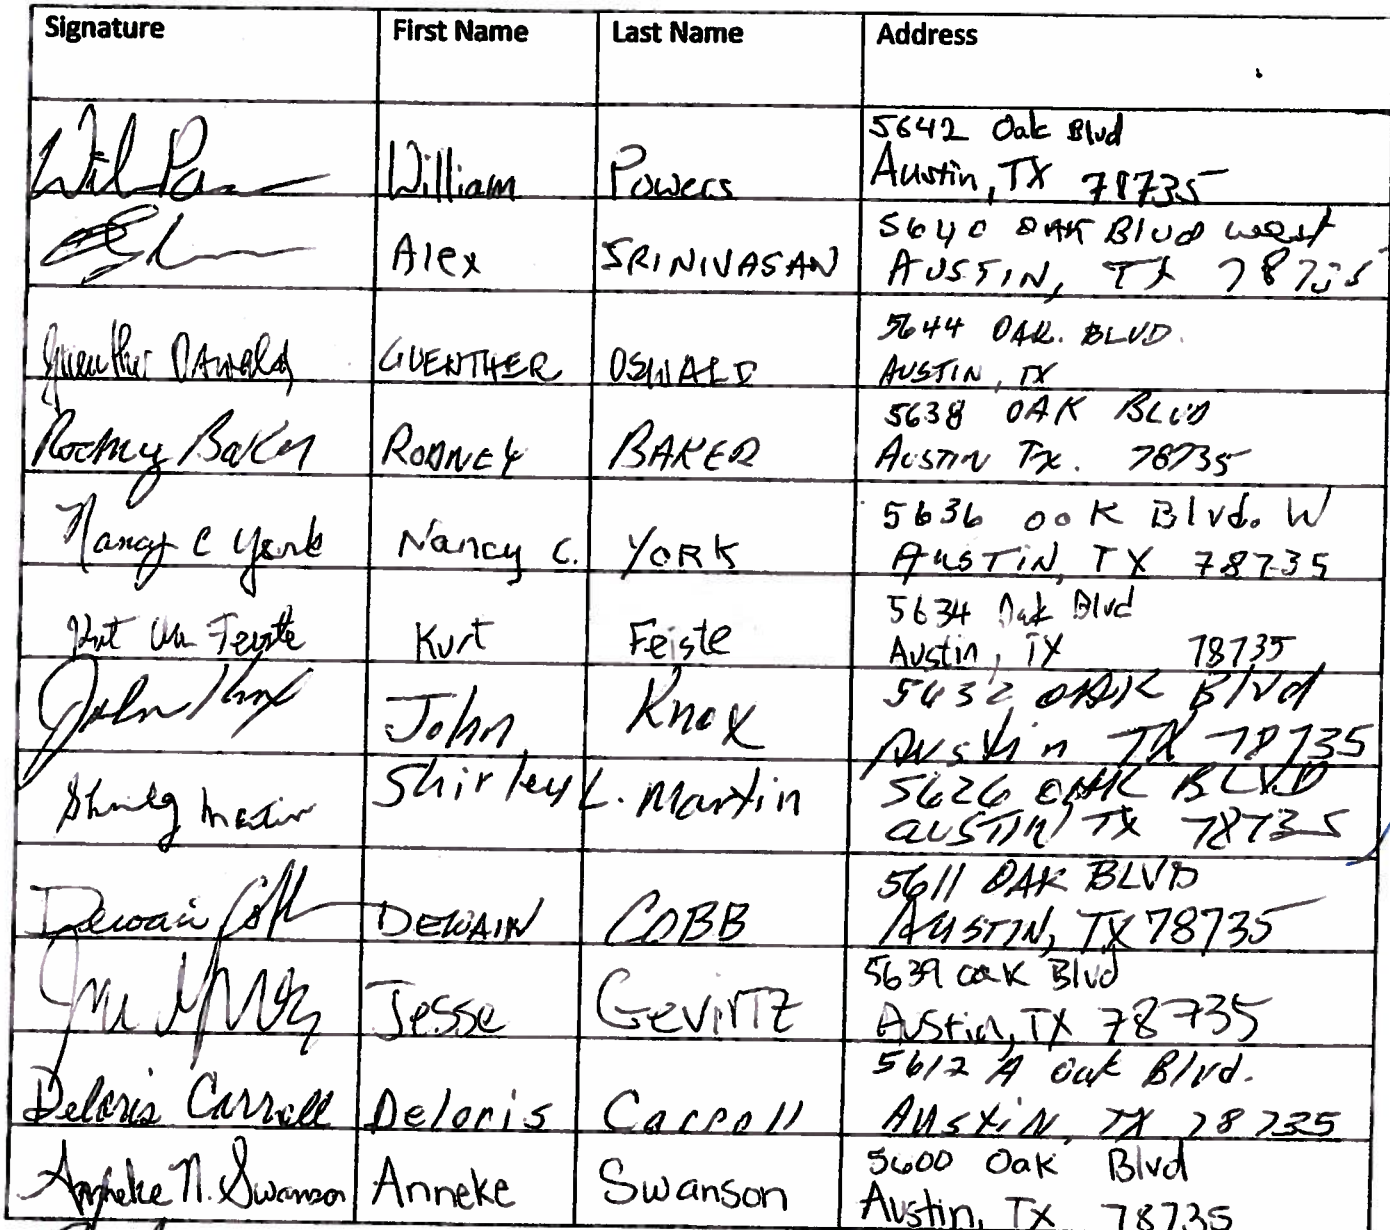 Signature First Name Last Name Address
William Powers 5642 Oak Blvd
Austin, TX 78735
Alex SRINIVASAN 5640 OAK Blvd west
AUSTIN, TX 78735
Guenther Oswald GUENTHER OSWALD 5644 OAK. BLVD.
AUSTIN, TX
Rodney Baker RODNEY BAKER 5638 OAK BLVD
AUSTIN TX. 78735
Nancy C York Nancy C. YORK 5636 oaK Blvd. W
AUSTIN, TX 78735
Kurt Feiste 5634 Oak Blvd
Austin, TX 78735
John Knox John Knox 5632 OAK Blvd
Austin TX 78735
Shirley Martin Shirley L. Martin 5626 OAK BLVD
AUSTIN, TX 78735
Dewain Cobb DEWAIN COBB 5611 OAK BLVD
AUSTIN, TX 78735
Jesse Gevirtz 5639 oak Blvd
Austin, TX 78735
Deloris Carroll Deloris Carroll 5612 A Oak Blvd.
Austin, TX 78735
Anneke N. Swanson Anneke Swanson 5600 Oak Blvd
Austin, TX 78735